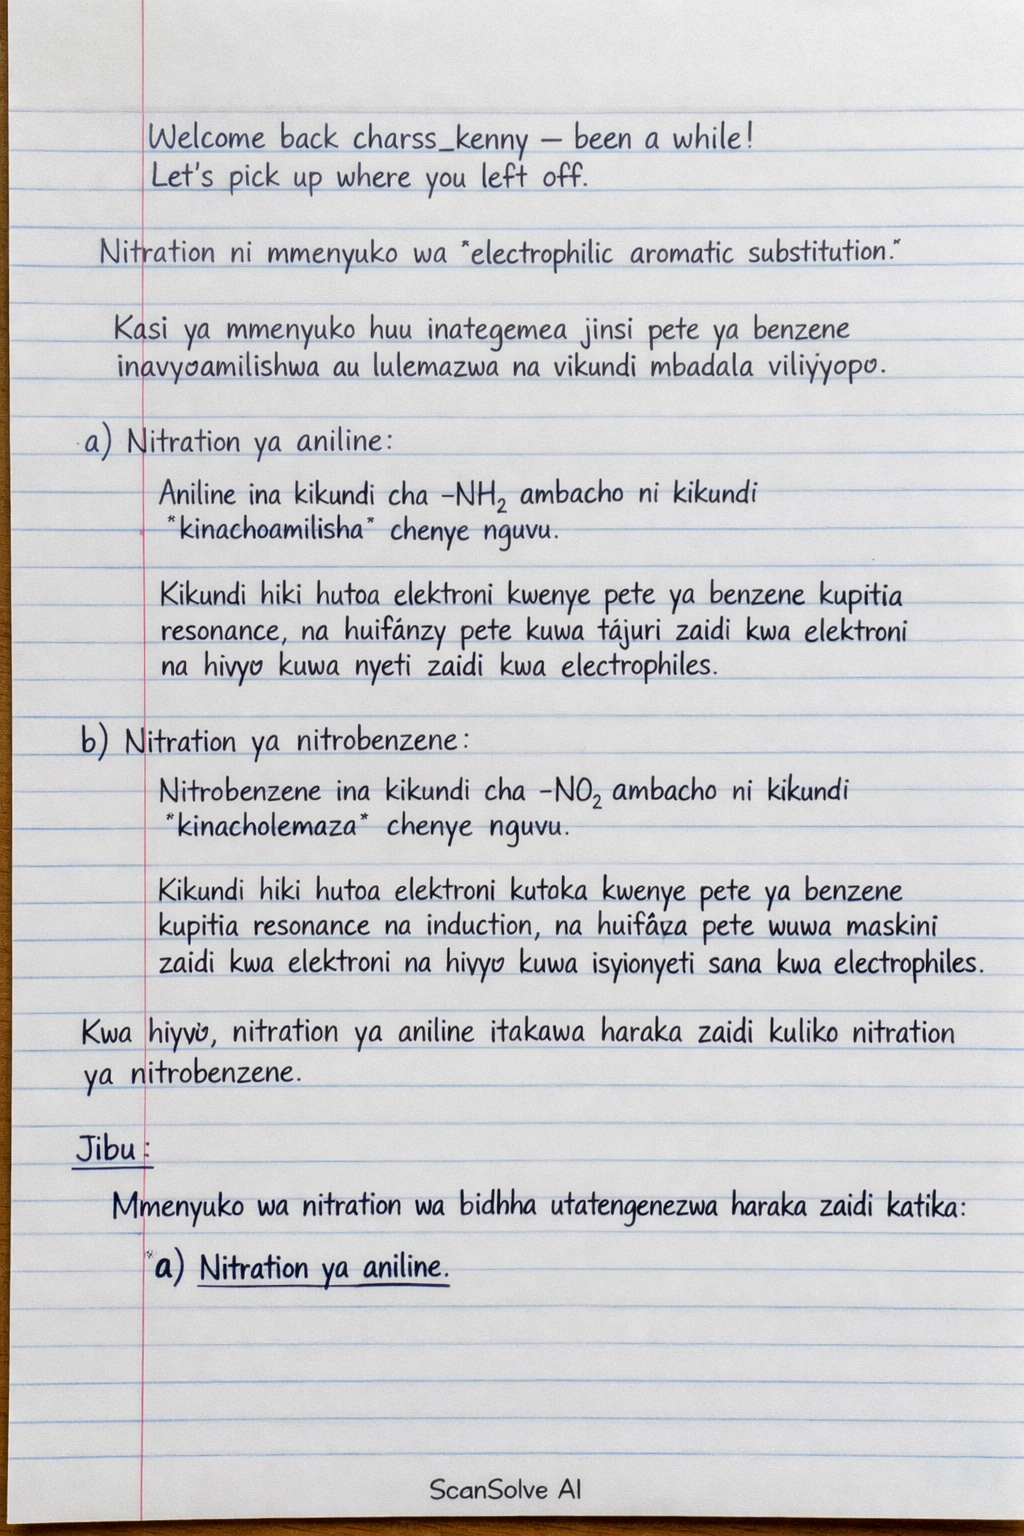 Welcome back charss_kenny – been a while!
Let's pick up where you left off.
Nitration ni mmenyuko wa "electrophilic aromatic substitution."
Kasi ya mmenyuko huu inategemea jinsi pete ya benzene
inavyoamilishwa au lulemazwa na vikundi mbadala viliÿyopo.
a) Nitration ya aniline:
Aniline ina kikundi cha –NH₂ ambacho ni kikundi
*kinachoamilisha* chenye nguvu.
Kikundi hiki hutoa elektroni kwenye pete ya benzene kupitia
resonance, na huifánzy pete kuwa tájuri zaidi kwa elektroni
na hivyo kuwa nyeti zaidi kwa electrophiles.
b) Nitration ya nitrobenzene:
Nitrobenzene ina kikundi cha –NO₂ ambacho ni kikundi
*kinacholemaza* chenye nguvu.
Kikundi hiki hutoa elektroni kutoka kwenye pete ya benzene
kupitia resonance na induction, na pete wuwa maskini
zaidi kwa elektroni na hivyo kuwa isyionyeti sana kwa electrophiles.
Kwa nitration ya aniline itakawa haraka zaidi kuliko nitration
ya nitrobenzene.
Jibu:
Mmenyuko wa nitration wa bidhha utatengenezwa haraka zaidi katika:
a) Nitration ya aniline.
ScanSolve AI